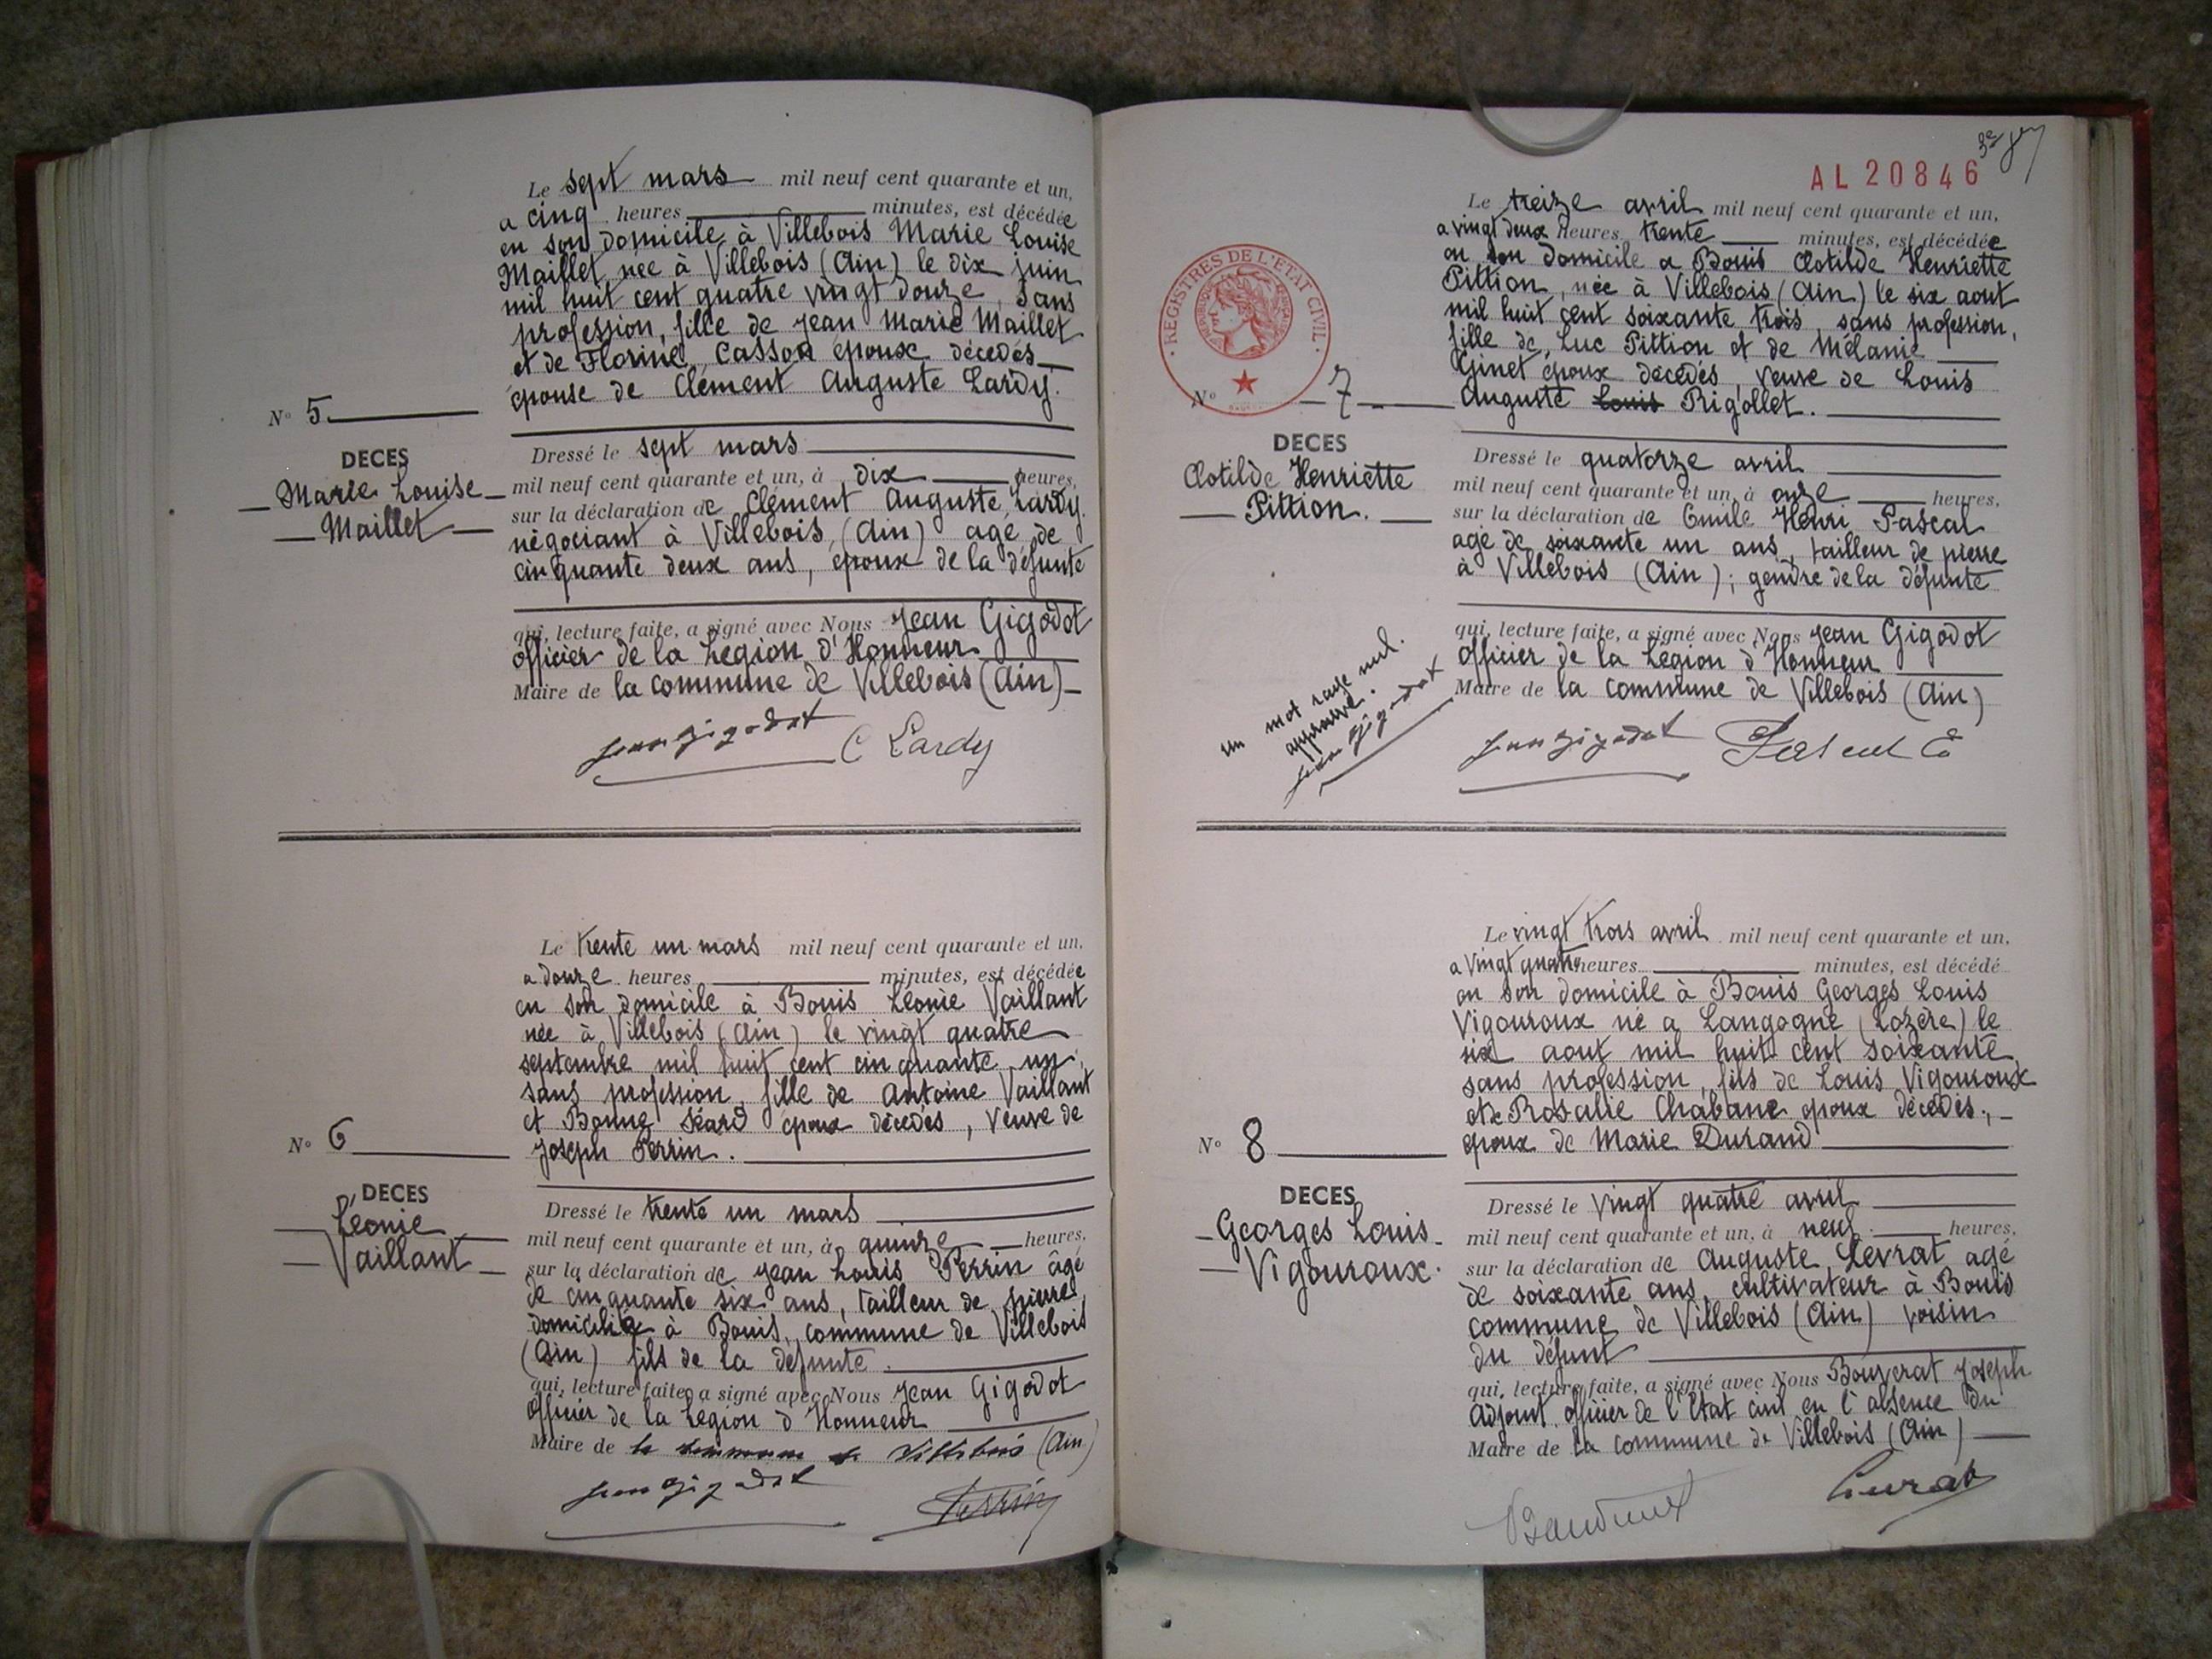 Le sept mars mil neuf cent quarante et un,
a cinq heures minutes, est décédée
en son domicile à Villebois Marie Louise
Maillet née à Villebois (Ain) le dix juin
mil huit cent quatre vingt douze, sans
profession, fille de Jean Marie Maillet
et de Florine Casson époux décédés
épouse de Clément Auguste Lardy.
N° 5
DECES
Marie Louise
Maillet
Dressé le sept mars
mil neuf cent quarante et un, à dix heures,
sur la déclaration de Clément Auguste Lardy
négociant à Villebois, (Ain) agé de
cinquante deux ans, époux de la défunte
qui, lecture faite, a signé avec Nous Jean Gigodot
Officier de la Légion d'Honneur
Maire de la commune de Villebois (Ain)
Jean Gigodot C Lardy
Le trente un mars mil neuf cent quarante et un.
a douze heures minutes, est décédée
en son domicile à Bouis Léonie Vaillant
née à Villebois (Ain) le vingt quatre
septembre mil huit cent cinquante un,
sans profession, fille de Antoine Vaillant
et Bonne époux décédés, veuve de
Joseph Perrin.
N° 6
DECES
Léonie
Vaillant
Dressé le trente un mars
mil neuf cent quarante et un, à quinze heures,
sur la déclaration de Jean Louis Perrin âgé
de cinquante six ans, tailleur de pierre,
domicilié à Bouis, commune de Villebois
(Ain) fils de la défunte.
qui, lecture faite, a signé avec Nous Jean Gigodot
Officier de la Légion d'Honneur
Maire de la commune de Villebois (Ain)
Jean Gigodot Perrin
AL 20846
Le treize avril mil neuf cent quarante et un,
a vingt deux heures trente minutes, est décédée
en son domicile a Bouis Clotilde Henriette
Pittion, née à Villebois (Ain) le six aout
mil huit cent soixante trois, sans profession,
fille de Luc Pittion et de Mélanie
Ginet époux décédés, veuve de Louis
Auguste Louis Rigollet.
REGISTRES DE L'ETAT CIVIL
N° 7
DECES
Clotilde Henriette
Pittion.
Dressé le quatorze avril
mil neuf cent quarante et un, à onze heures,
sur la déclaration de Emile Henri Pascal
agé de soixante un ans, tailleur de pierre
à Villebois (Ain); gendre de la défunte
qui, lecture faite, a signé avec Nous Jean Gigodot
Officier de la Légion d'Honneur
Maire de la commune de Villebois (Ain)
un mot rayé nul.
approuvé.
Jean Gigodot
Jean Gigodot Pascal
Le vingt trois avril mil neuf cent quarante et un,
a vingt quatre heures minutes, est décédé
en son domicile à Bouis Georges Louis
Vigouroux né a Langogne (Lozère) le
six aout mil huit cent soixante
sans profession, fils de Louis Vigouroux
et de Rosalie Chabane époux décédés,
époux de Marie Durand
N° 8
DECES
Georges Louis
Vigouroux.
Dressé le vingt quatre avril
mil neuf cent quarante et un, à neuf heures,
sur la déclaration de Auguste Levrat agé
de soixante ans, cultivateur à Bouis
commune de Villebois (Ain) voisin
du défunt
qui, lecture faite, a signé avec Nous Bouverat Joseph
Adjoint officier de l'Etat civil en l'absence du
Maire de la commune de Villebois (Ain)
Levrat